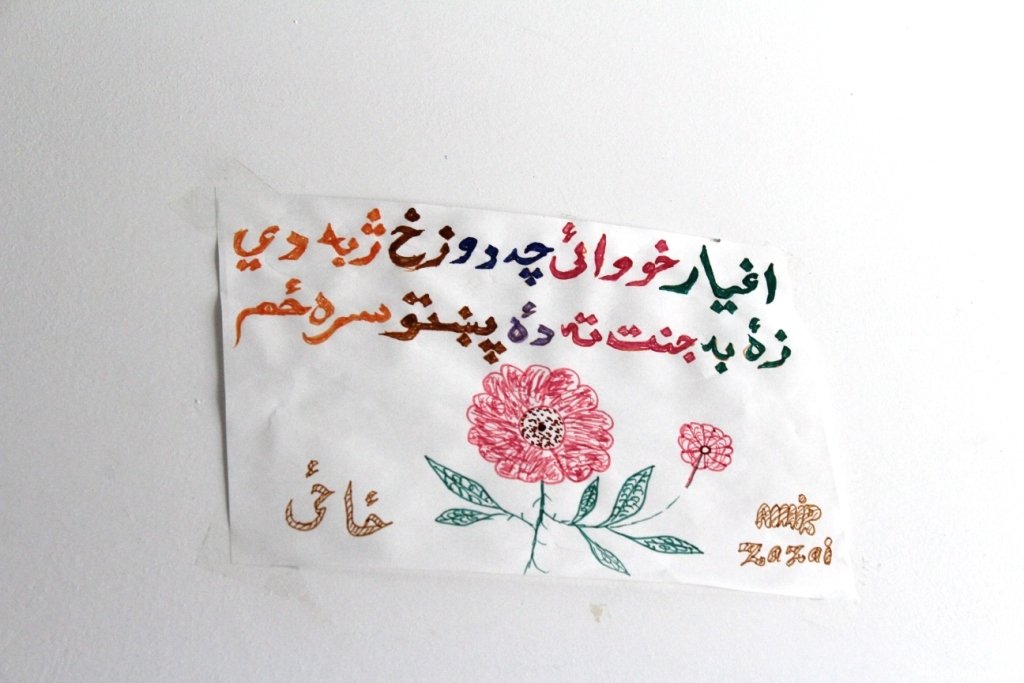 اغيار خو وائی چه دوزخ ژبه دي
زۀ به جنت ته دۀ پښتو سره ځم
ځاځی
AMIR
Zazai